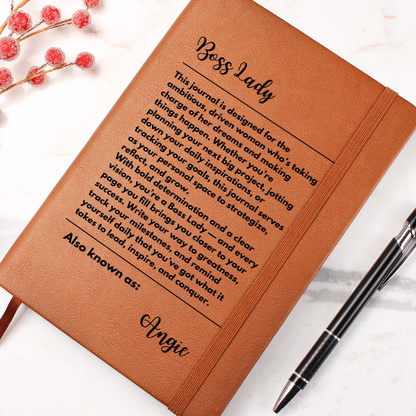 Boss Lady
This journal is designed for the
ambitious, driven woman who's taking
charge of her dreams and making
things happen. Whether you're
planning your next big project, jotting
down your daily inspirations, or
tracking your goals, this journal serves
as your personal space to strategize,
reflect, and grow.
With bold determination and a clear
vision, you're a Boss Lady — and every
page you fill brings you closer to your
success. Write your way to greatness,
track your milestones, and remind
yourself daily that you've got what it
takes to lead, inspire, and conquer.
Also known as:
Angie